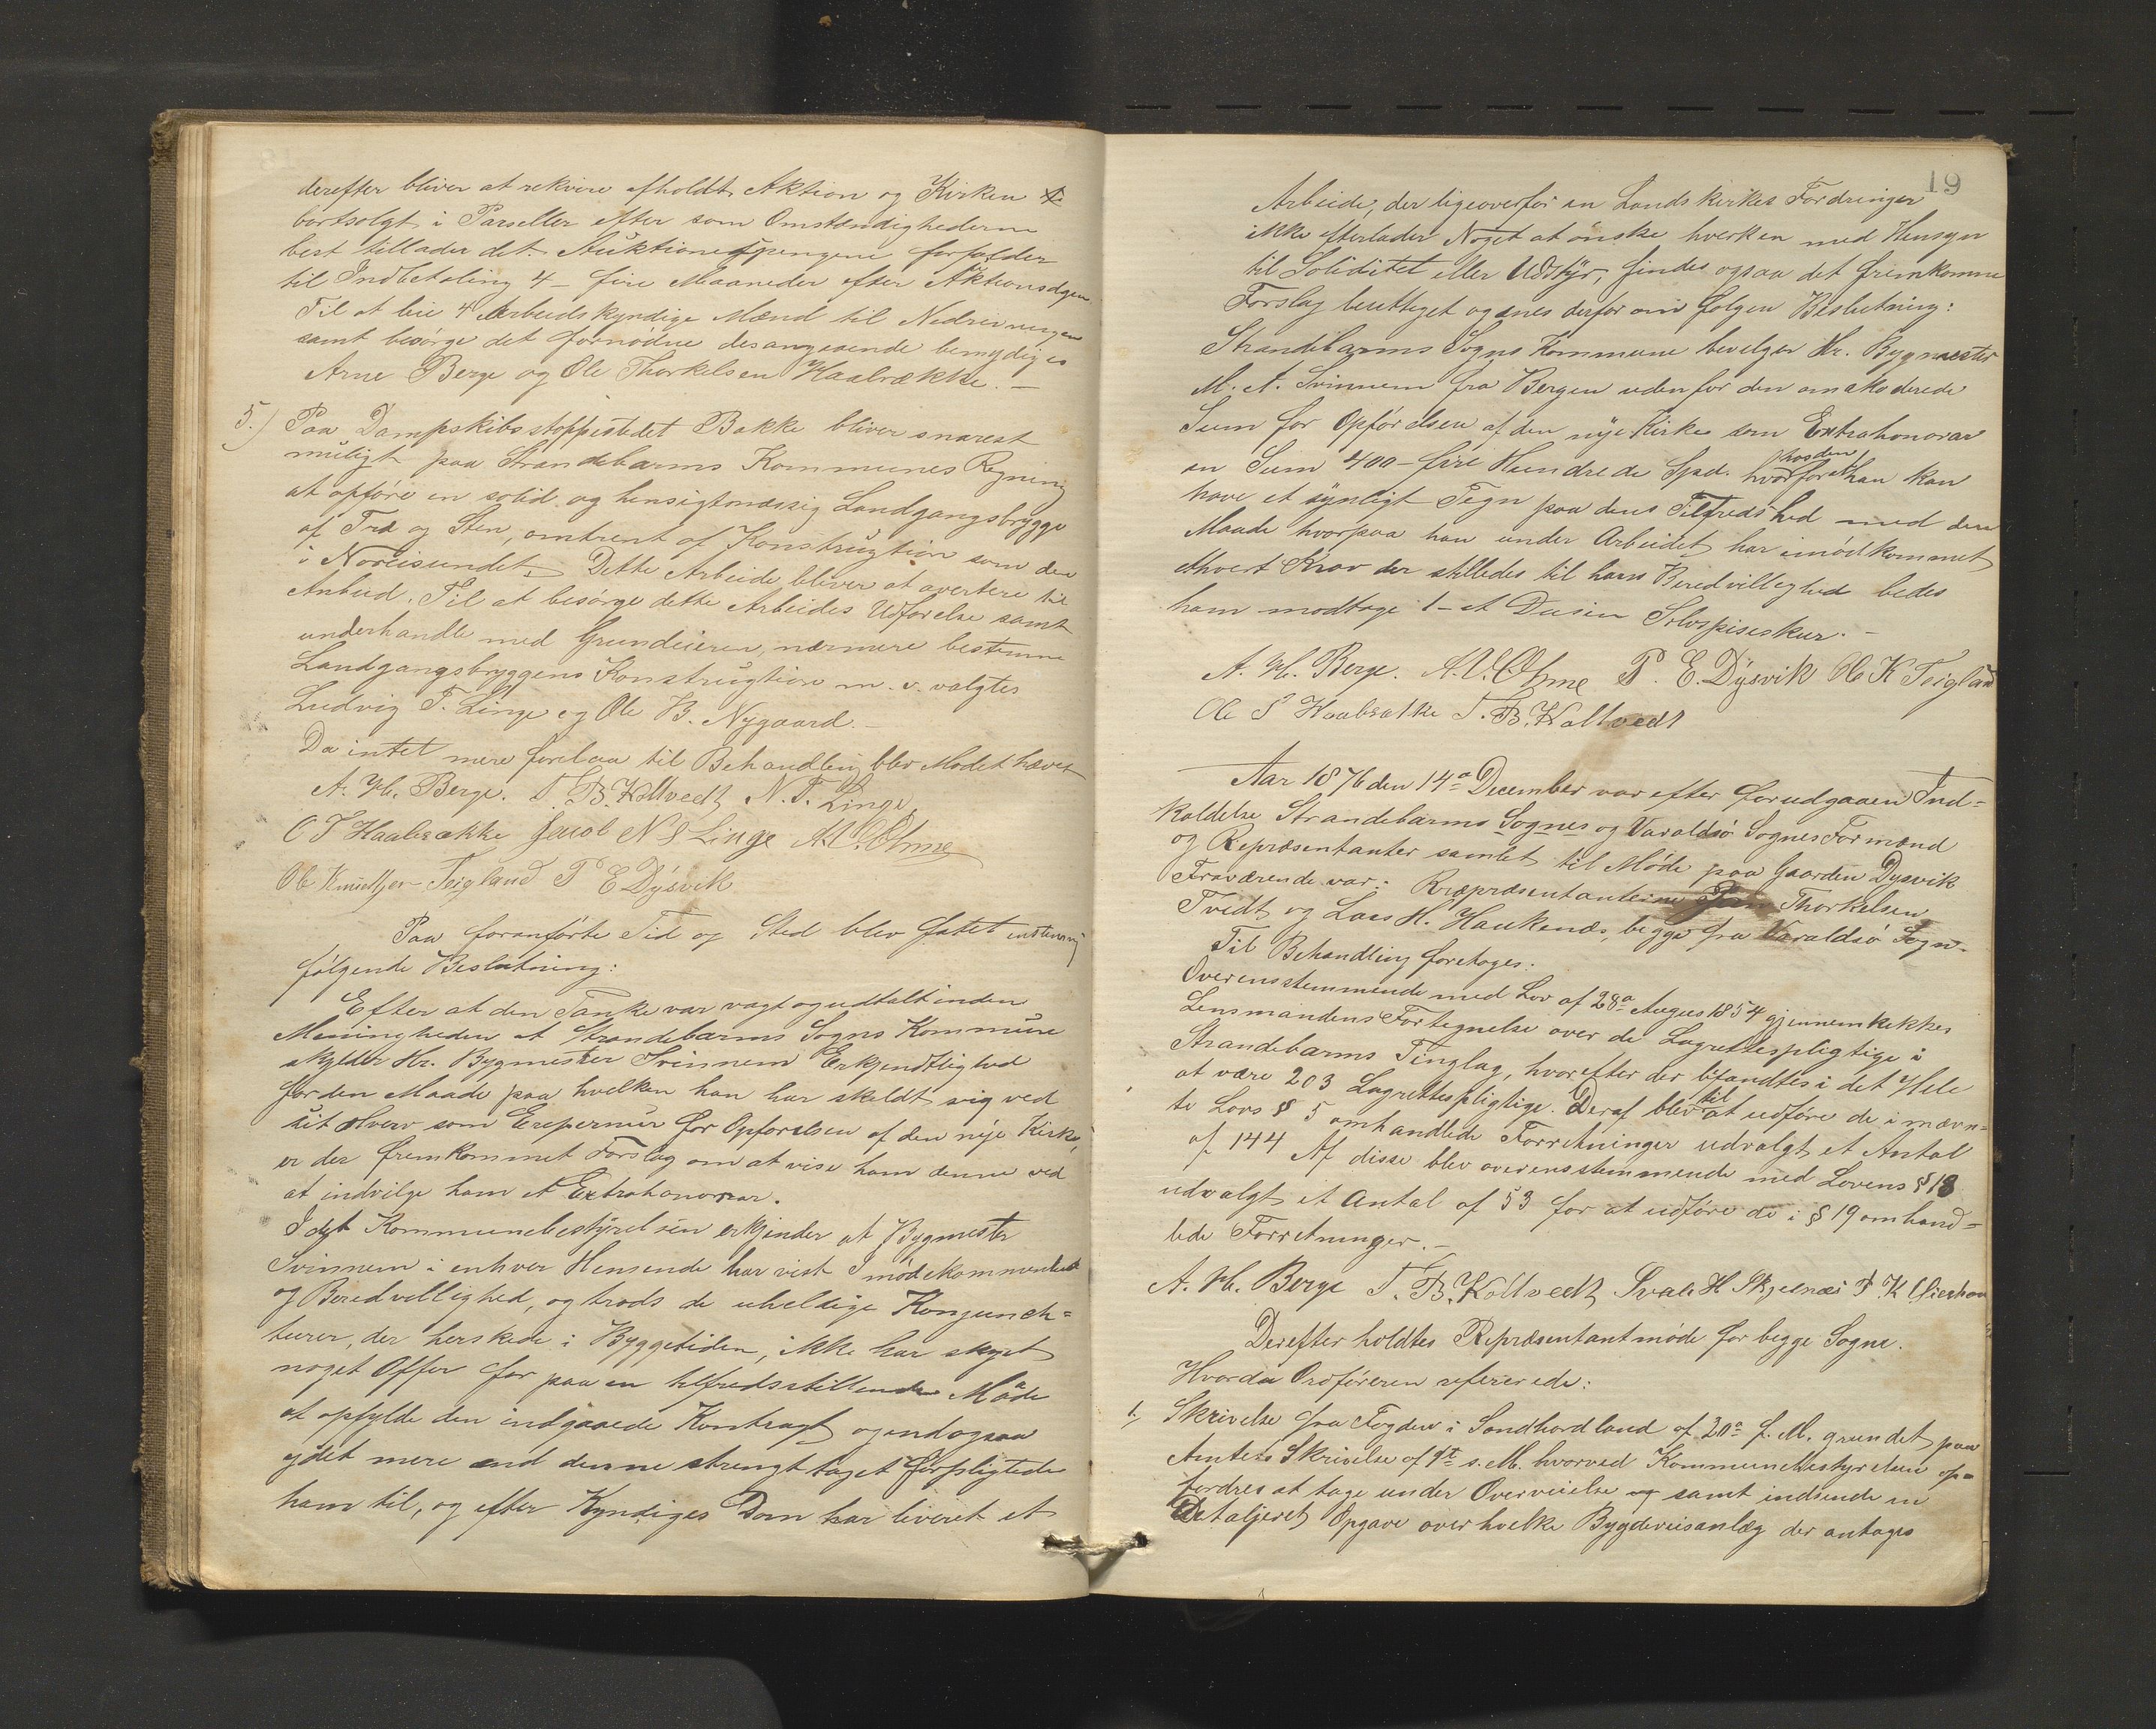 derefter bliver at rekvire afholdt Aktion og Kirken
bortsolgt i Parseller efter som Omstændighederne
best tillader det. Auktionespengene forfalder
til Indbetaling 4 - fire Maaneder efter Aktionsdgen.
Til at leie 4 Arbeidskyndige Mænd til Nedrivningen
samt besørge det fornødne desangaaende bemydiges
Arne Berge og Ole Thorkelsen Haabrække. -
5.) Paa Dampskibsstoppestedet Bakke bliver snarest
muligt paa Strandebarms Kommunes Regning
at opføre en solid og hensigtmæssig Landgangsbrygge
af Træ og Sten, omtrent af Konstrugtion som den
i Noreisundet. Dette Arbeide bliver at avertere til
Anbud. Til at besørge dette Arbeides Udførelse samt
underhandle med Grundeieren, nærmere bestemme
Landgangsbryggens Konstrugtion m. v. valgtes
Ludvig T. Linge og Ole B. Nygaard. -
Da intet mere forelaa til Behandling blev Mødet hævet
A. Hb. Berge. T. B. Koltvedt N. T. Linge,
O T Haabrække Jacob N S Linge A. O. Ohme
Ole Knudtsen Teigland P E Dysvik
Paa foranførte Tid og Sted blev fatet enstemmig
følgende Beslutning:
Efter at den Tanke var vagt og udtalt inden
Meningheden at Strandebarms Sogns Kommune
skylder Hr. Bygmester Svinnem Erkjendtlighed
for den Maade paa hvelken han har skeldt sig ved
sit Hverv som Erepernur for Opførelsen af den nye Kirke,
er der fremkommet Forslag om at vise ham denne ved
at indvilge ham et Extrahonorar.
I det Kommunebestyrelsen erkjender at Bygmester
Svinnem i enhver Hensende har vist Imødekommenhed
og Beredvellighed, og trods de uheldige Konjunck=
turer, der herskede i Byggetiden, ikke har skyet
noget Offer for paa en tilfredsstillende Måde
at opfylde den indgaaede Kontragt og endogsaa
ydet mere end denne strengt taget forpligtede
ham til, og efter Kyndiges Dom har leveret et
19
Arbeide, der ligeoverfor en Landskirkes Fordringer
ikke efterlader Noget at ønske hverken med Hensyn
til Soliditet eller Udstyr, findes ogsaa det fremkomne
Forslag beretteget og enes derfor om følgen Beslutning:
Strandebarms Sogns Kommune bevelger Hr. Bygmester
M. A. Svinnem fra Bergen udenfor den omakoderede
Sum for Opførelsen af den nye Kirke som Extrahonorar
en Sum 400 - fire Hundrede Spd. hvorfor hosden han kan
have et synligt Tegn paa dens Tilfredshed med den
Maade hvorpaa han under Arbeidet har imødkommet
ethvert Krav der stilledes til hans Beredvilleghed bedes
ham modtage 1 - et Dusin Sølvspiseskeer. -
A. Hb. Berge. A. O. Ohme P. E. Dysvik Ole K Teigland
Ole T Haabrække T. B. Koltvedt
Aar 1876 den 14de December var efter forudgaaen Ind=
kaldelse Strandebarms Sognes og Varaldsø Sognes Formænd
og Repræsentanter samlet til Møde paa Gaarden Dysvik
Fraværende var: Repræsentanterne Thorkelsen
Tvedt og Lars H. Haukenæs, begge fra Varaldsø Sogn.
Til Behandling foretoges:
Overensstemmende med Lov af 28de August 1854 gjennemkekkes
Lensmandens Fortegnelse over de Lagrettespligtige i
Strandebarms Tinglag, hvorefter der befandtes i det Hele
at være 203 Lagrettespligtige. Deraf blev til at udføre de i nævn=
te Lovs § 5 omhandlede Forretninger udvalgt et Antal
af 144 Af disse blev overensstemmende med Lovens § 18
udvalgt et Antal af 53 for at udføre de i § 19 omhand=
lede Forretninger. -
A. Hb. Berge T. B. Koltvedt Svale H Skjelnæs T K
Derefter holdtes Repræsentantmøde for begge Sogne.
Hvorda Ordføreren refererede:
1. Skrivelse fra Fogden i Søndhordland af 20de f. M. grundet paa
Amtets Skrivelse af 9de s. M. hvorved Kommunebestyrelsen op=
fordres at tage under Overveielse samt indsende en
Detaljeret Opgave over hvelke Bygdeveisanlæg der antages